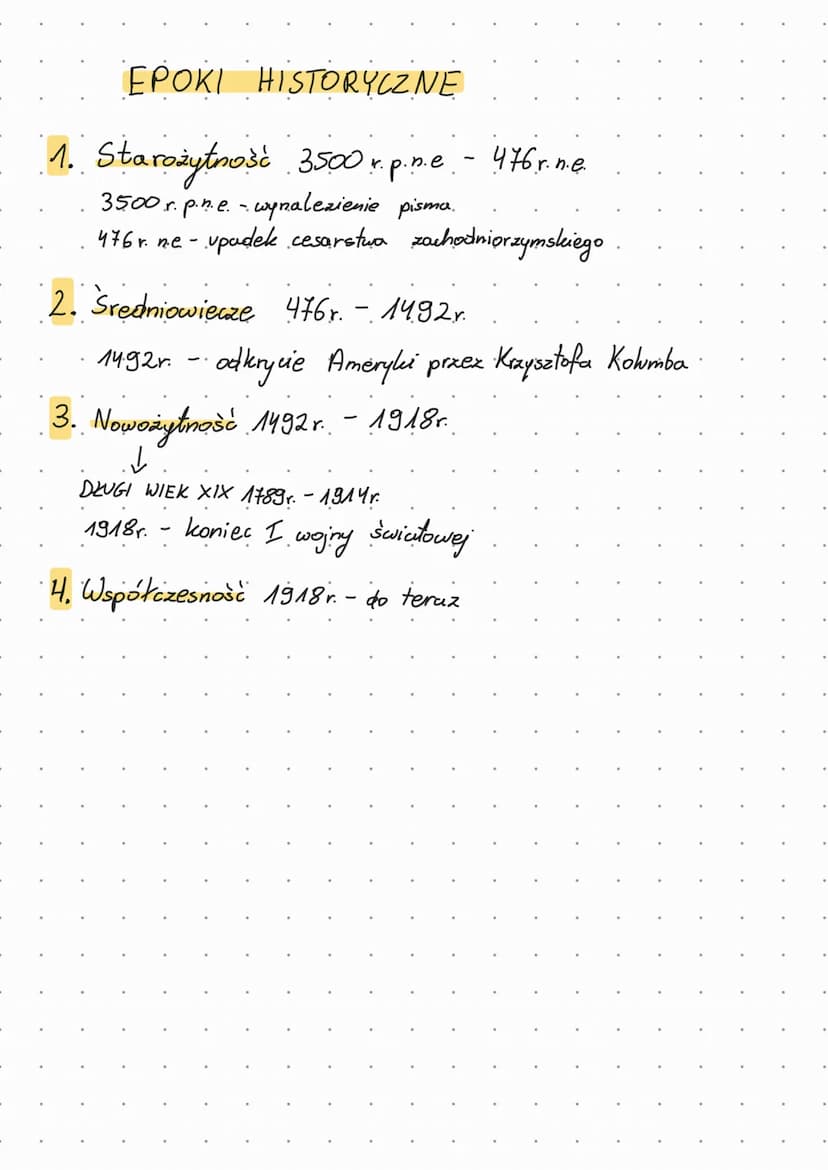 EPOKI HISTORYCZNE
1. Starożytność 3500 r. p.n.e - 476 r. n.e.
3500 r. p.n.e. - wynalezienie pisma.
476 r. ne - upadek cesarstwa zachodniorzymskiego
2. Średniowiecze 476r. - 1492r.
1492r. - odkrycie Ameryki przez Krzysztofa Kolumba
3. Nowożytność 1492r. - 1918r.
↓
DŁUGI WIEK XIX 1789r. - 1914r.
1918r. - koniec I wojny światowej
4. Współczesność 1918r. - do teraz